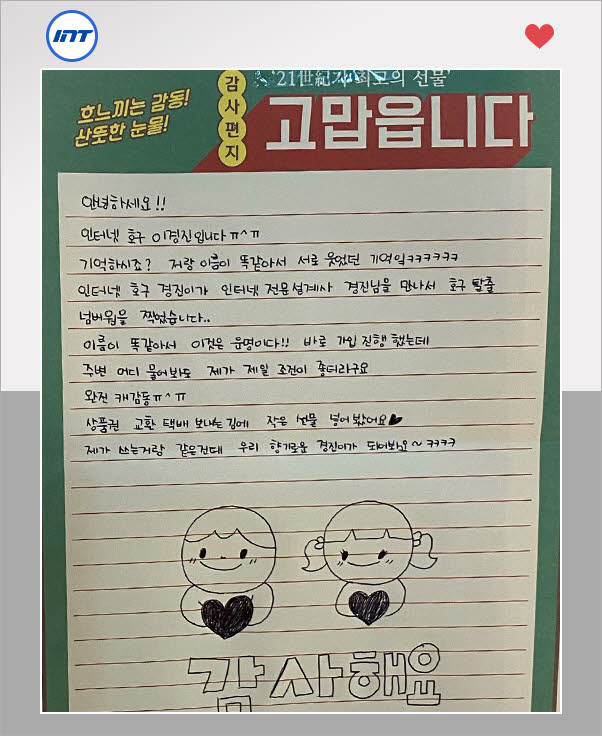 INT
'21世紀 최고의 선물'
흐느끼는 감동!
산뜻한 눈물!
감사편지
고맙읍니다
안녕하세요!!
인터넷 호구 이경진입니다ㅠ^ㅠ
기억하시죠? 저랑 이름이 똑같아서 서로 웃었던 기억잌ㅋㅋㅋㅋㅋ
인터넷 호구 경진이가 인터넷 전문설계사 경진님을 만나서 호구 탈출
넘버원을 찍었습니다..
이름이 똑같아서 이것은 운명이다!! 바로 가입 진행 했는데
주변 어디 물어봐도 제가 제일 조건이 좋더라구요
완전 캐감동ㅠ^ㅠ
상품권 교환 택배 보내는김에 작은 선물 넣어봤어요♥
제가 쓰는거랑 같은건데 우리 향기로운 경진이가 되어봐요~ㅋㅋㅋㅋ
감사해요